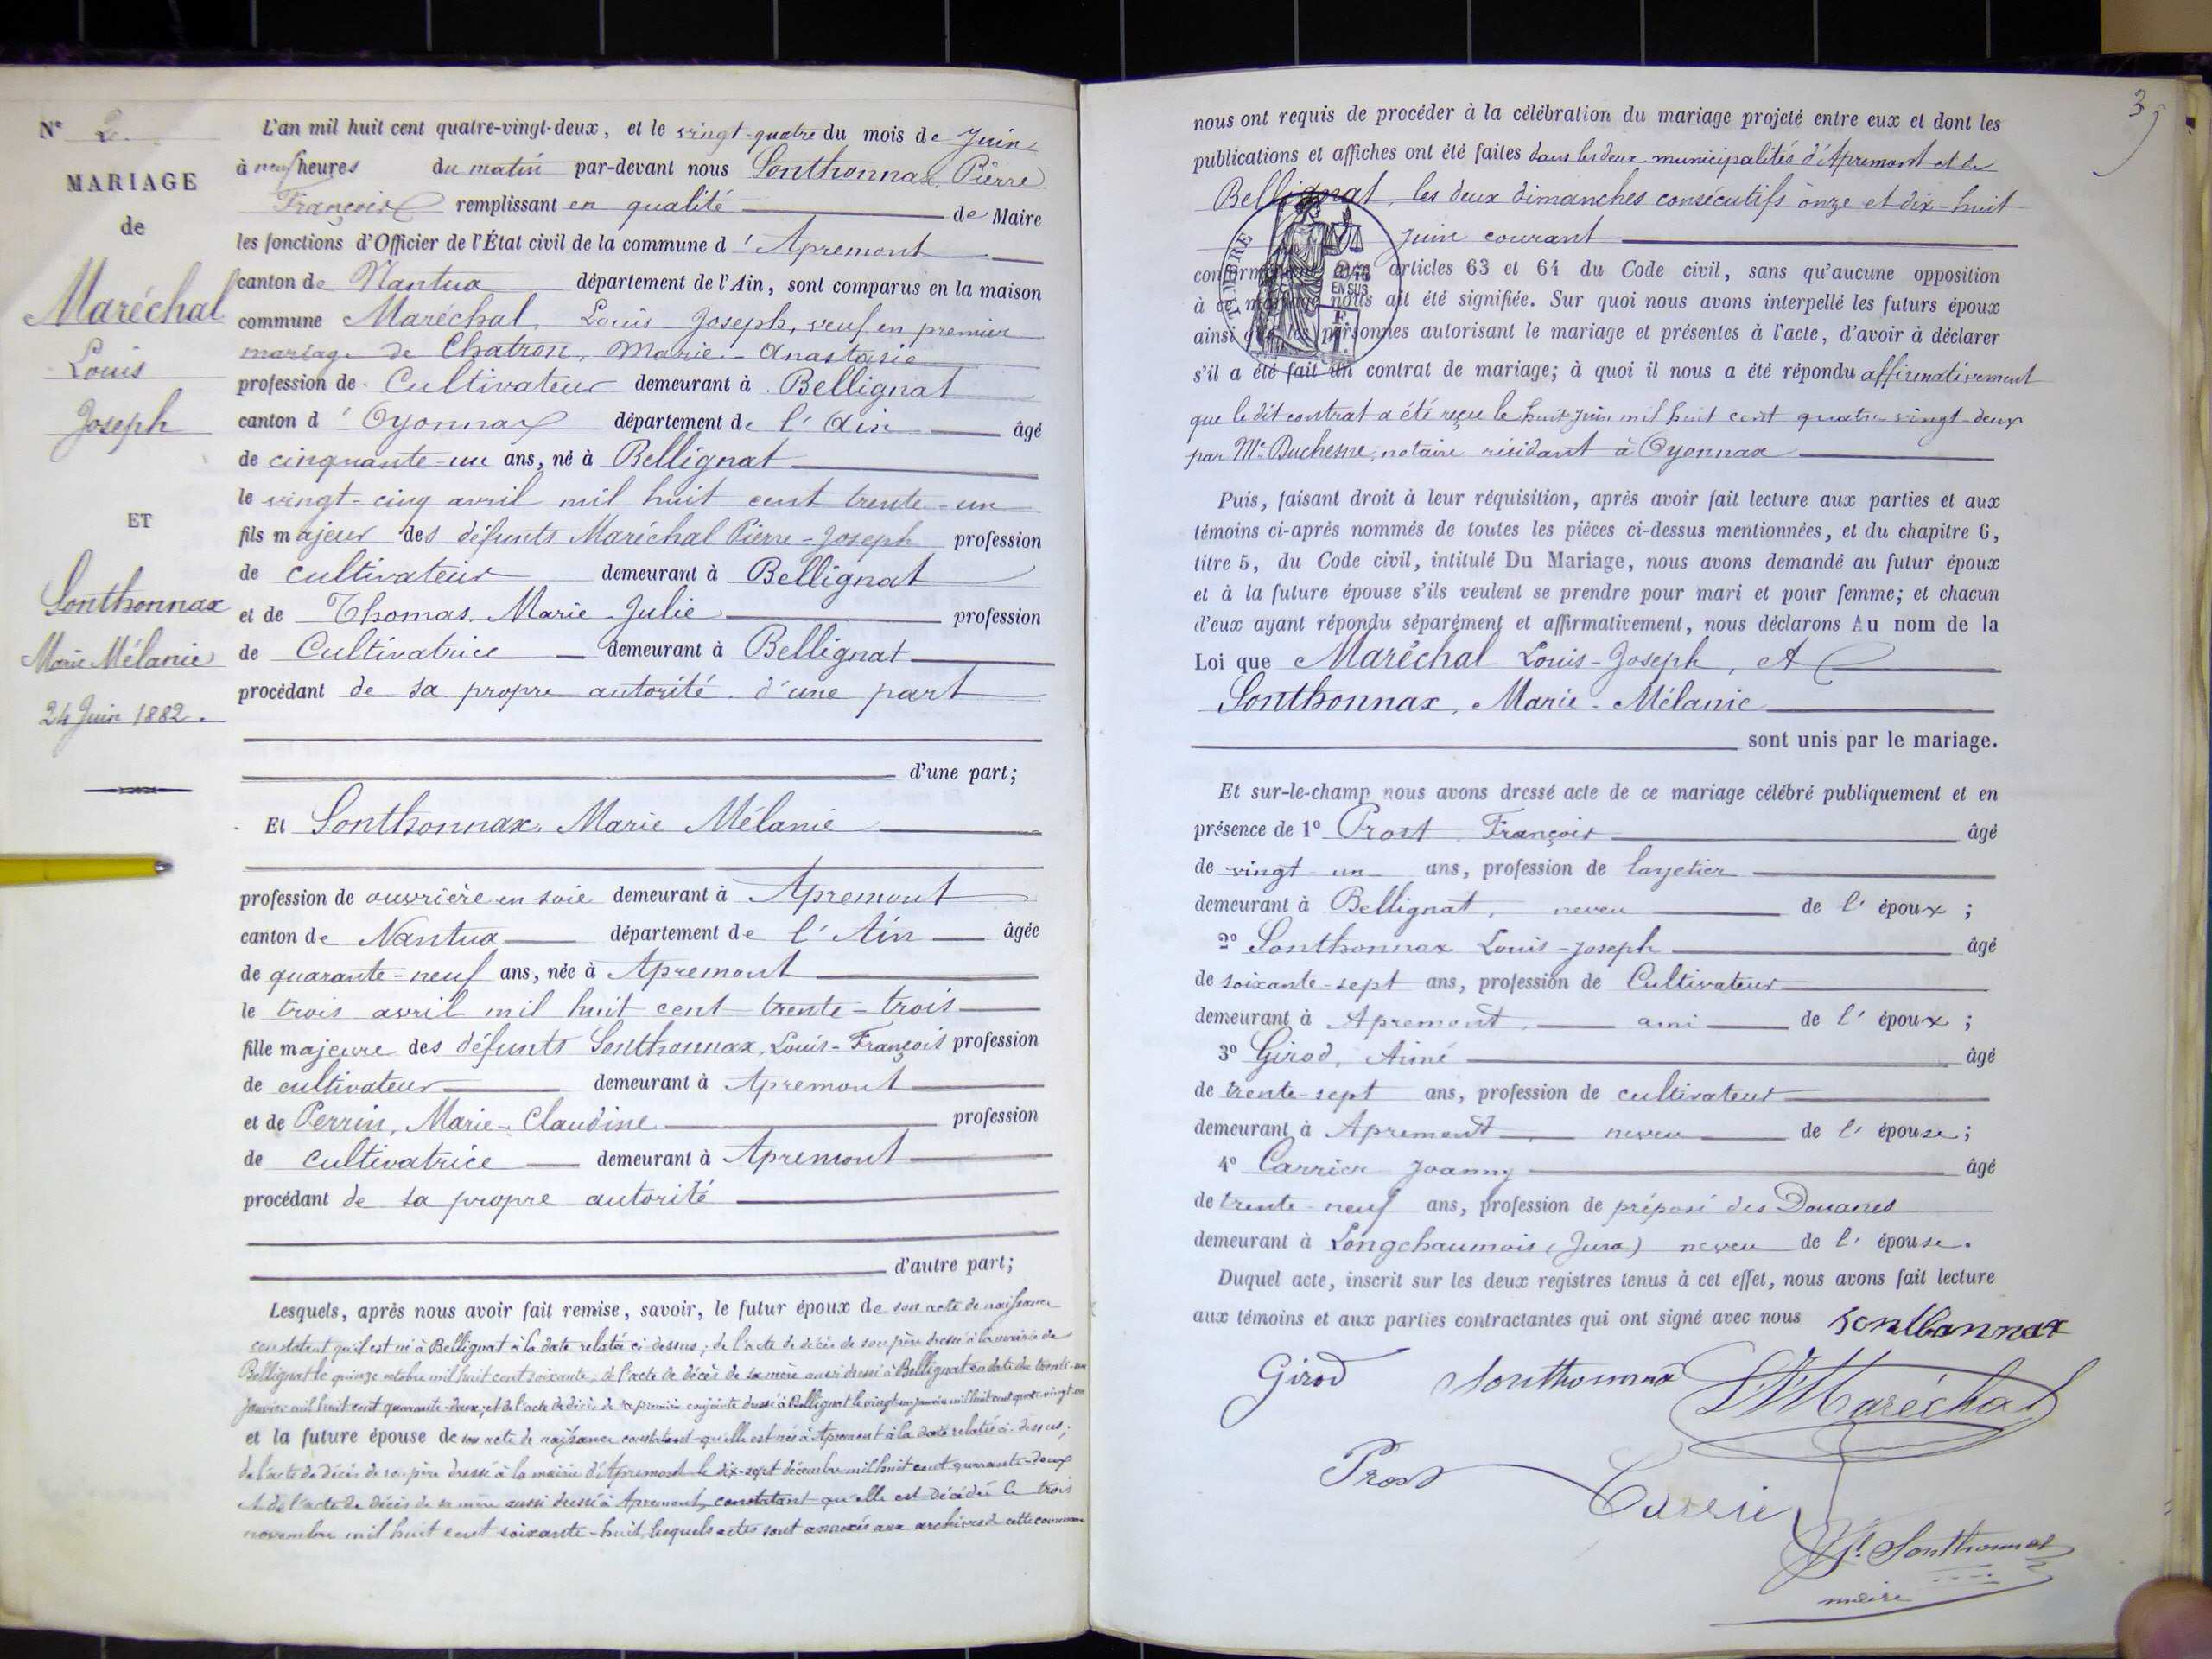 N° 2.
MARIAGE
de
Maréchal
Louis
Joseph
ET
Sonthonnax
Marie Mélanie
24 Juin 1882.
L'an mil huit cent quatre-vingt-deux, et le vingt-quatre du mois de Juin
à neuf heures du matin par-devant nous Sonthonnax, Pierre
François remplissant en qualité de Maire
les fonctions d'Officier de l'État civil de la commune d'Apremont
canton de Nantua département de l'Ain, sont comparus en la maison
commune Maréchal, Louis-Joseph, veuf en premier
mariage de Chatron, Marie-Anastasie
profession de Cultivateur demeurant à Bellignat
canton d'Oyonnax département de l'Ain âgé
de cinquante-un ans, né à Bellignat
le vingt-cinq avril mil huit cent trente-un
fils majeur des défunts Maréchal Pierre-Joseph profession
de cultivateur demeurant à Bellignat
et de Thomas Marie-Julie profession
de Cultivatrice demeurant à Bellignat
procédant de sa propre autorité d'une part
d'une part;
Et Sonthonnax, Marie Mélanie
profession de ouvrière en soie demeurant à Apremont
canton de Nantua département de l'Ain âgée
de quarante-neuf ans, née à Apremont
le trois avril mil huit cent trente-trois
fille majeure des défunts Sonthonnax, Louis-François profession
de cultivateur demeurant à Apremont
et de Perrin, Marie-Claudine profession
de cultivatrice demeurant à Apremont
procédant de sa propre autorité
d'autre part;
Lesquels, après nous avoir fait remise, savoir, le futur époux de son acte de naissance
constatant qu'il est né à Bellignat à la date relatée ci-dessus; de l'acte de décès de son père dressé à la mairie de
Bellignat le quinze octobre mil huit cent soixante; de l'acte de décès de sa mère aussi dressé à Bellignat en date du trente-un
Janvier mil huit cent quarante-deux, et de l'acte de décès de sa première conjointe dressé à Bellignat le vingt-un janvier mil huit cent quatre-vingt-un
et la future épouse de son acte de naissance constatant qu'elle est née à Apremont à la date relatée ci-dessus;
de l'acte de décès de son père dressé à la mairie d'Apremont le dix-sept décembre mil huit cent quarante-deux
et de l'acte de décès de sa mère aussi dressé à Apremont, constatant qu'elle est décédée le trois
novembre mil huit cent soixante-huit, lesquels actes sont annexés aux archives de cette commune
nous ont requis de procéder à la célébration du mariage projeté entre eux et dont les
publications et affiches ont été faites dans les deux municipalités d'Apremont et de
Bellignat, les deux dimanches consécutifs onze et dix-huit
Juin courant
conformément aux articles 63 et 64 du Code civil, sans qu'aucune opposition
à ce mariage nous ait été signifiée. Sur quoi nous avons interpellé les futurs époux
ainsi que les personnes autorisant le mariage et présentes à l'acte, d'avoir à déclarer
s'il a été fait un contrat de mariage; à quoi il nous a été répondu affirmativement
que le dit contrat a été reçu le huit juin mil huit cent quatre-vingt-deux
par Me Duchesne, notaire résidant à Oyonnax
TIMBRE
EN SUS
Puis, faisant droit à leur réquisition, après avoir fait lecture aux parties et aux
témoins ci-après nommés de toutes les pièces ci-dessus mentionnées, et du chapitre 6,
titre 5, du Code civil, intitulé Du Mariage, nous avons demandé au futur époux
et à la future épouse s'ils veulent se prendre pour mari et pour femme; et chacun
d'eux ayant répondu séparément et affirmativement, nous déclarons Au nom de la
Loi que Maréchal Louis-Joseph, et
Sonthonnax, Marie-Mélanie
sont unis par le mariage.
Et sur-le-champ nous avons dressé acte de ce mariage célébré publiquement et en
présence de 1° Prost François âgé
de vingt un ans, profession de layetier
demeurant à Bellignat, neveu de l'époux;
2° Sonthonnax Louis-Joseph âgé
de soixante-sept ans, profession de Cultivateur
demeurant à Apremont, ami de l'époux;
3° Girod, Aimé âgé
de trente-sept ans, profession de cultivateur
demeurant à Apremont, neveu de l'épouse;
4° Carrier Joanny âgé
de trente-neuf ans, profession de préposé des Douanes
demeurant à Longchaumois (Jura) neveu de l'épouse.
Duquel acte, inscrit sur les deux registres tenus à cet effet, nous avons fait lecture
aux témoins et aux parties contractantes qui ont signé avec nous Sonthannax
Girod Sonthonnax Maréchal
Prost Carrier
Sonthonnax
maire